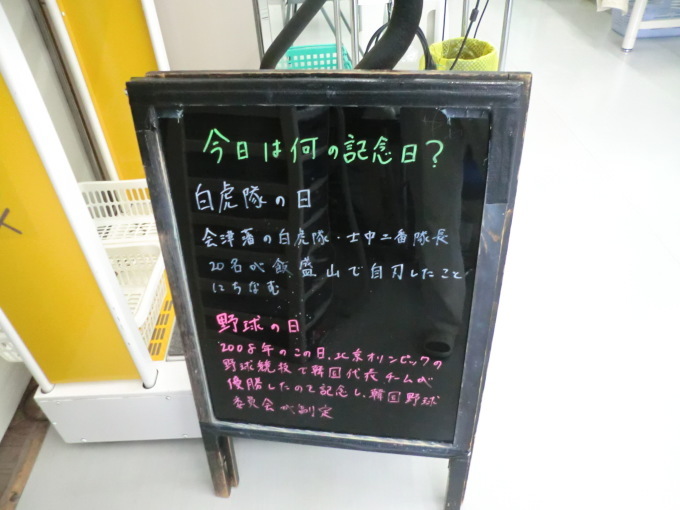 今日は何の記念日?
白虎隊の日
会津藩の白虎隊・士中二番隊長
20名が飯盛山で自刃したこと
にちなむ
野球の日
2008年のこの日、北京オリンピックの
野球競技で韓国代表チームが
優勝したのを記念し、韓国野球
委員会が制定